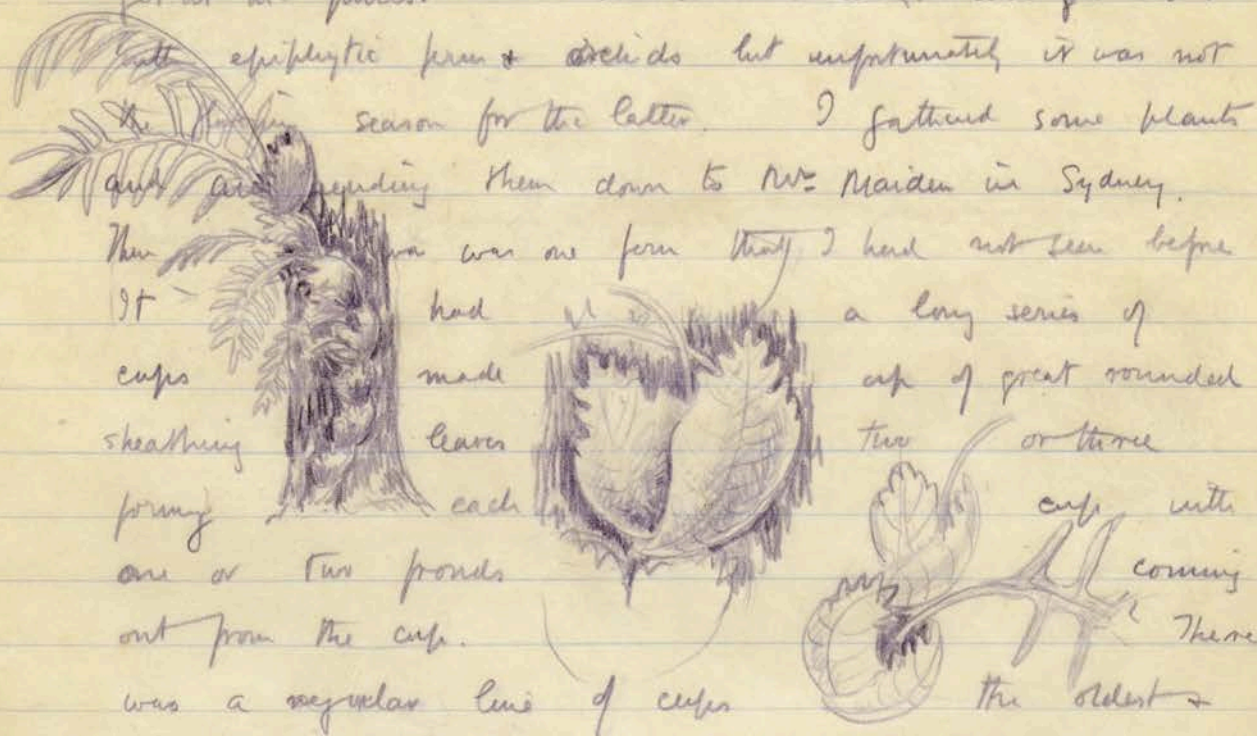 with epiphytic ferns & orchids but unfortunately it was not
the season for the latter. I gathered some plants
and am sending them down to Mr Maiden in Sydney.
There was one fern that I had not seen before
It had a long series of
cups made up of great rounded
sheathing leaves two or three
forming each cup with
one or two fronds coming
out from the cup. There
was a regular line of cups the oldest &